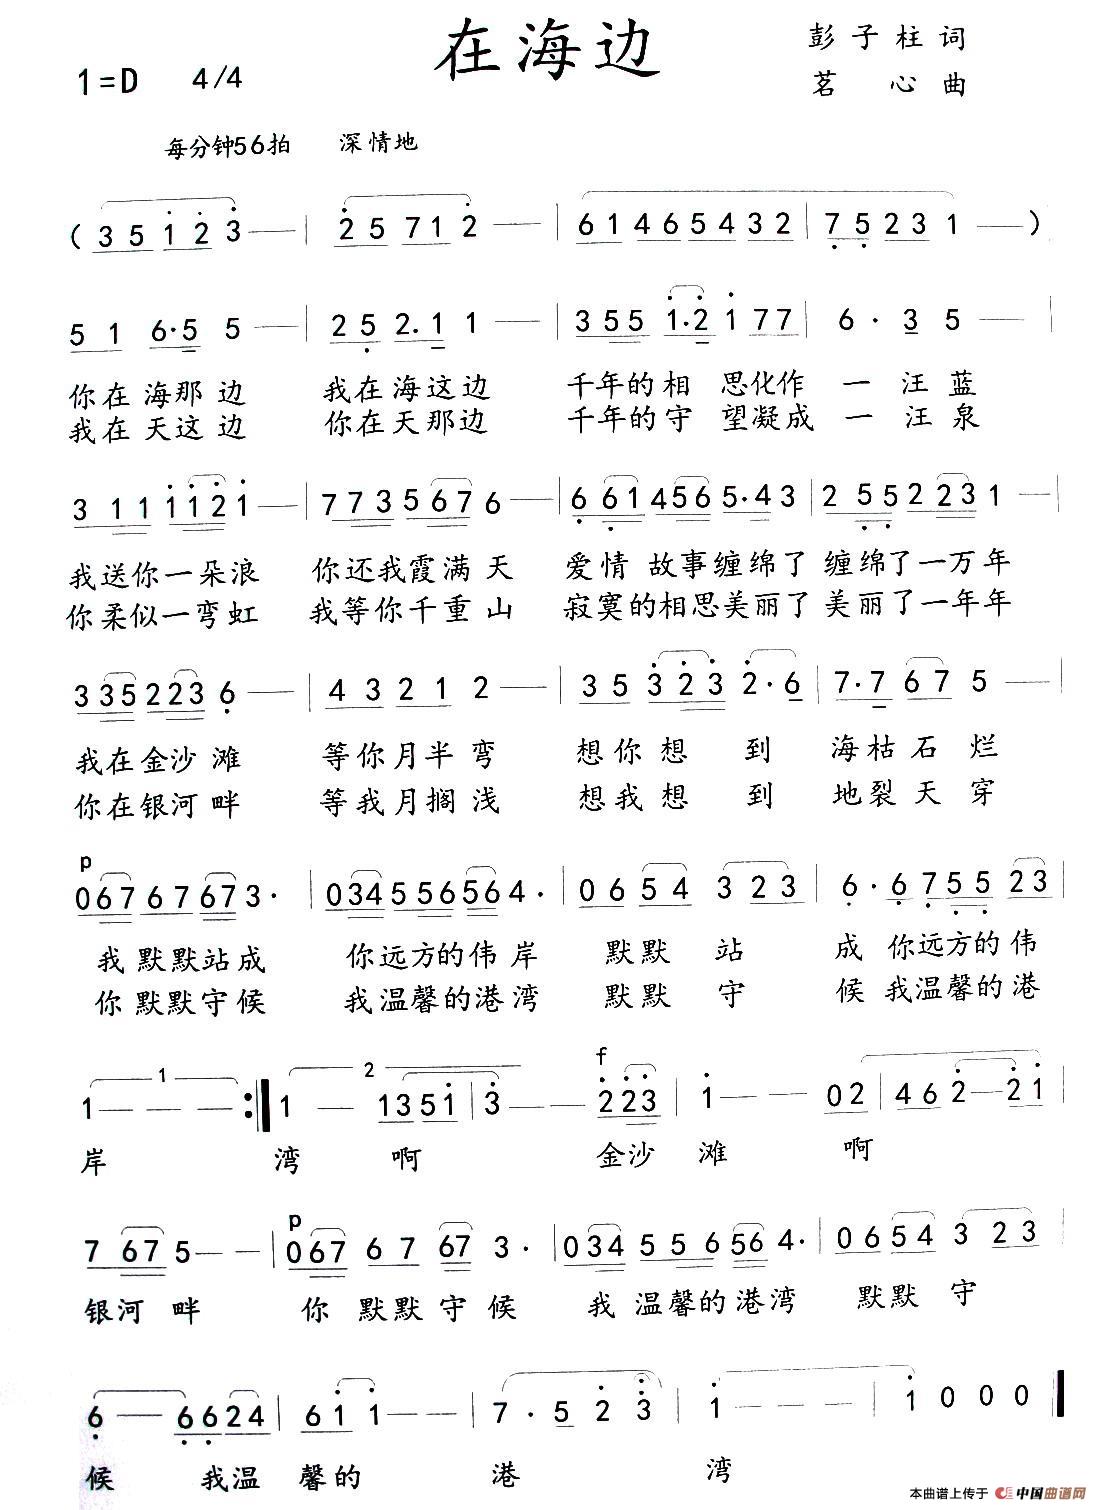 在海边
彭子柱词
1=D 4/4
茗心曲
每分钟56拍 深情地
(3 5 1 2 3 — | 2 5 7 1 2 — | 6 1 4 6 5 4 3 2 | 7 5 2 3 1 — )
5 1 6·5 5 — | 2 5 2.1 1 — | 3 5 5 1·2 1 7 7 | 6· 3 5 — |
你在海那边 我在海这边 千年的相思化作一汪蓝
我在天这边 你在天那边 千年的守望凝成一汪泉
3 1 1 1 1 2 1 | 7 7 3 5 6 7 6 — | 6 6 1 4 5 6 5·4 3 | 2 5 5 2 2 3 1 — |
我送你一朵浪 你还我霞满天 爱情故事缠绵了 缠绵了一万年
你柔似一弯虹 我等你千重山 寂寞的相思美丽了 美丽了一年年
3 3 5 2 2 3 6 — | 4 3 2 1 2 — | 3 5 3 2 3 2·6 | 7·7 6 7 5 — |
我在金沙滩 等你月半弯 想你想到 海枯石烂
你在银河畔 等我月搁浅 想我想到 地裂天穿
p
0 6 7 6 7 6 7 3· | 0 3 4 5 5 6 5 6 4· | 0 6 5 4 3 2 3 | 6· 6 7 5 5 2 3 |
我默默站成 你远方的伟岸 默默站成 你远方的伟
你默默守候 我温馨的港湾 默默守候 我温馨的港
1 2 f
1 — — — :| 1 — 1 3 5 1 | 3 — — 2 2 3 | 1 — — 0 2 | 4 6 2 — 2 1 |
岸 湾 啊 金沙滩 啊
p
7 6 7 5 — — | 0 6 7 6 7 6 7 3· | 0 3 4 5 5 6 5 6 4· | 0 6 5 4 3 2 3 |
银河畔 你默默守候 我温馨的港湾 默默守
6 — 6 6 2 4 | 6 1 1 — | 7· 5 2 3 | 1 — — — | 1 0 0 0
候 我温馨的港湾
本曲谱上传于 中国曲谱网